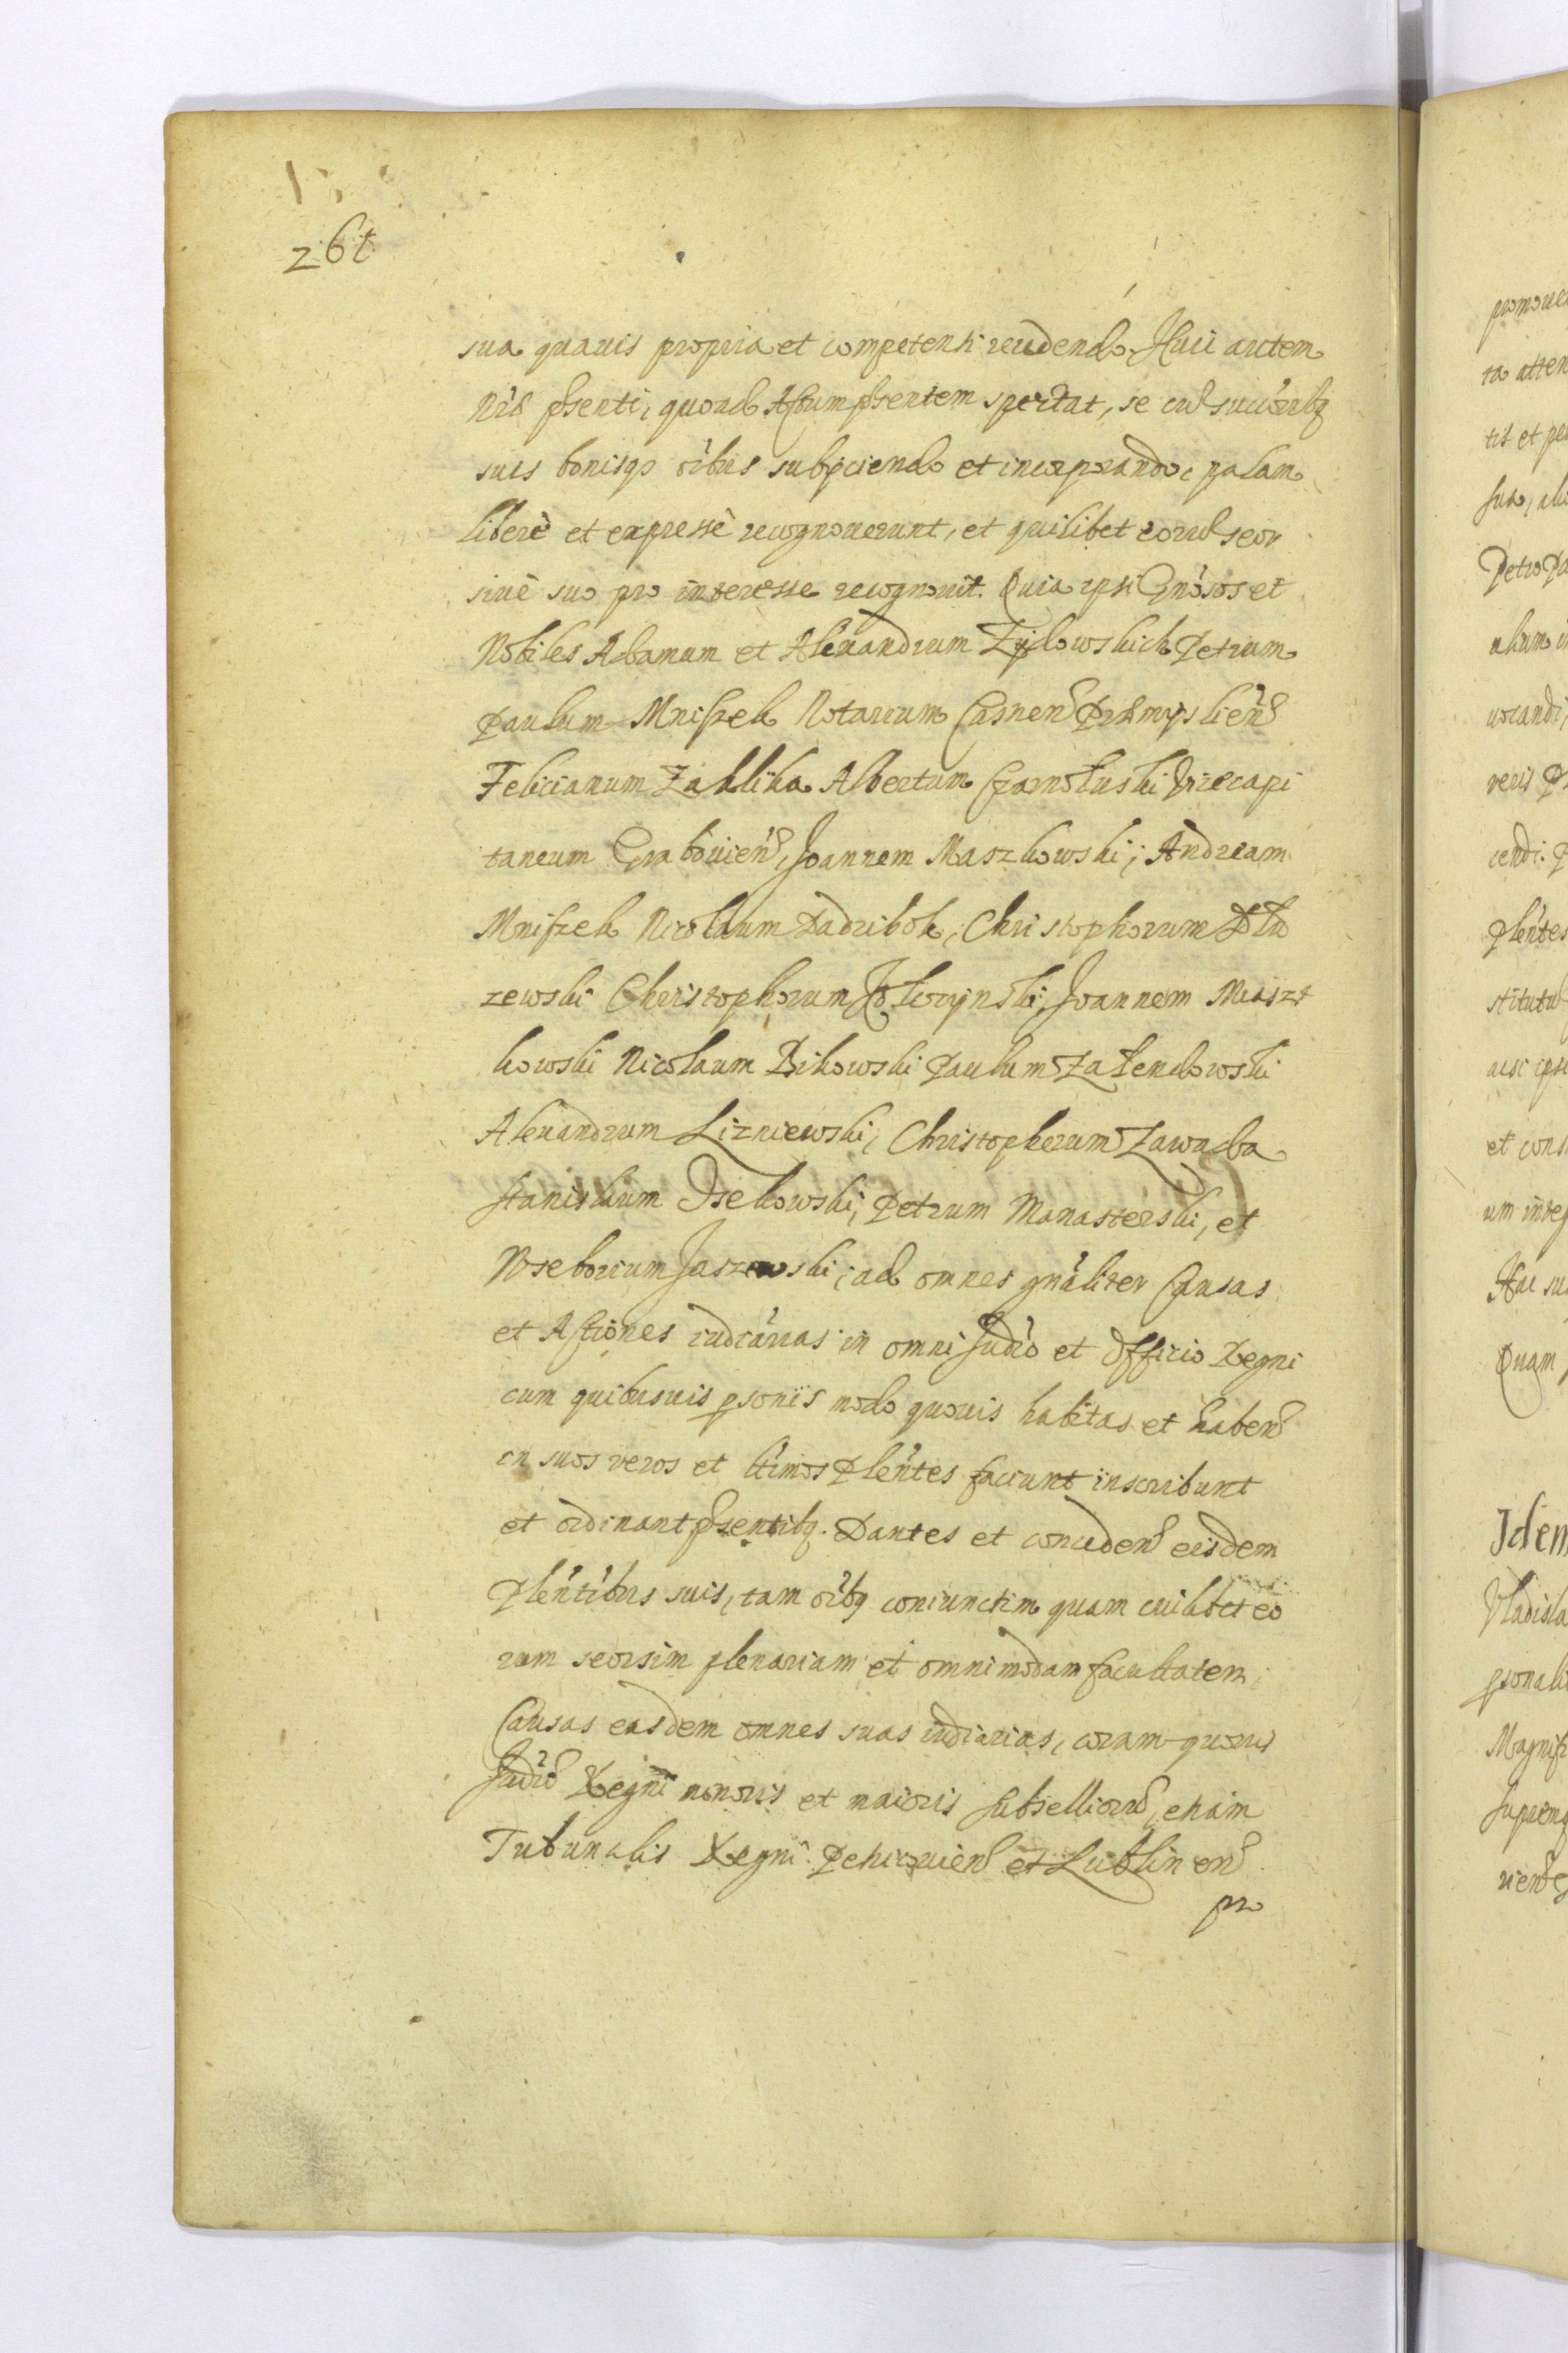 26t
sua quavis propria et competenti recedendo. Huic autem
Nrö psenti, quoad Actum psentem spectat, se cū succöribq
suis bonisqȝ oïbus subiiciendo et incorporando, palam
liberè et expressè recognoverunt, et quilibet eorū seor
sivè suo pro interesse recognovit. Quia ipsi Gnösos et
Nobiles Adamum et Alexandrum Zydowskich Petrum
Paulum Mniszek Notarium Casnen Præmyslien
Felicianum Zaklika Albertum Czarnoluski Vicecapi
taneum Grabovien, Joannem Maszkowski, Andream
Mniszek Nicolaum Padzibok, Christophorum
zewski Christophorum Joannem Miaszt
kowski Nicolaum Bikowski Paulum Zalendowski
Alexandrum Lizniewski, Christophorum Zawada
Stanislaum Osekowski, Petrum Manasterski, et
Noseborium Jaszewski, ad omnes gnäliter Causas
et Actiones iudiciärias in omni Judiö et Officio Regni
cum quibusvis psoniis modo quovis habitas et haben
in suos veros et ltimos Plentes faciunt inscribunt
et ordinant psentibq. Dantes et conceden eisdem
Plentibus suis, tam oïbq coniunctim quam cuilibet eo
rum seorsim plenariam et omnimodam facultatem
Causas easdem omnes suas iudiciarias, coram quovis
Judiö Regni minoris et maioris Subselliorū, etiam
Tribunalis Regni Petricovien et Lublinen
pro
promove
ta atten
tis et pe
Petro Pa
ucandi,
cendi.
Plentes
stitutū
et cons
um integ
Quam
Idem
Vladisla
psonali
Magnifi
Suprem